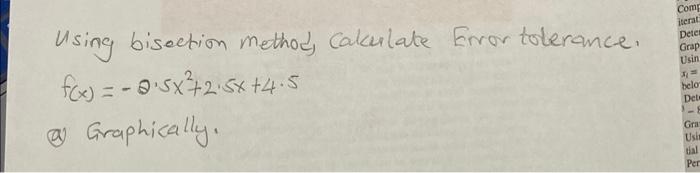 Using bisection method, Calculate Error tolerance.
f(x) = -0.5x²+2.5x+4.5
ⓐ Graphically.
Comp
iterat
Deter
Grap
Usin
x₁ =
belo
Dete
Gra
Usin
tial
Per